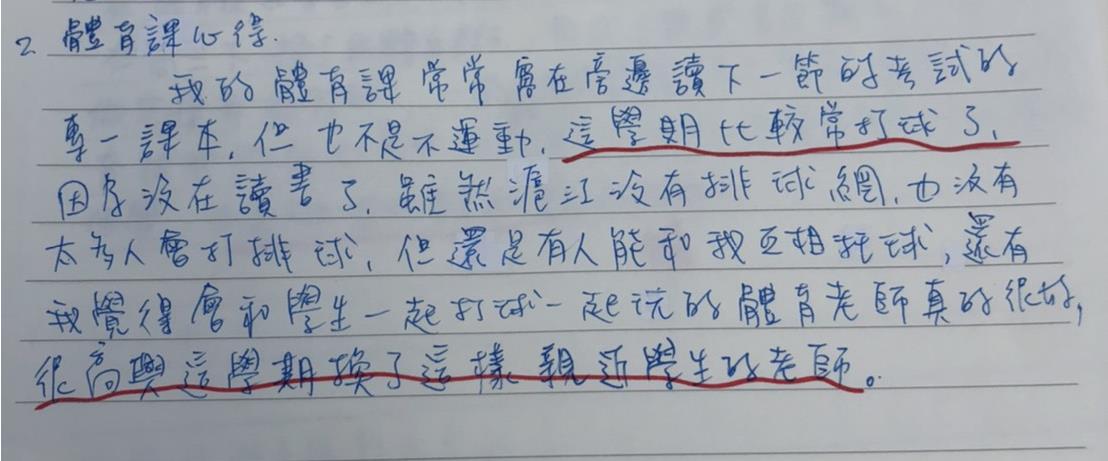 2. 體育課心得.
我的體育課常常窩在旁邊讀下一節的考試的
專一課本,但也不是不運動,這學期比較常打球了,
因為沒在讀書了,雖然滬江沒有排球網,也沒有
太多人會打排球,但還是有人能和我互相托球,還有
我覺得會和學生一起打球一起玩的體育老師真的很好,
很高興這學期換了這樣親近學生的老師。